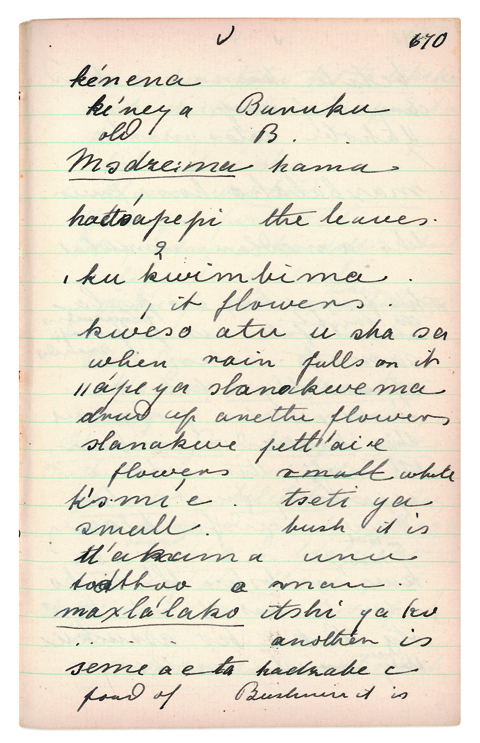 670
kénena
kéneya Bunuku
old B.
Msdze:ma hama
hatsapepi the leaves.
ku kwimbima .
it flowers
kwéso atu u sha sa
when rain falls on it
//ape ya slanakwe ma
dried up anethe flowers
slanakwe pett'aie
flowers small white
k's mí e . tseti ya
small . bush it is
tl'akama unu
a man .
maxlálako itshi ya ko
another is
seme a e ta hadzabe c
food of Bushmen it is